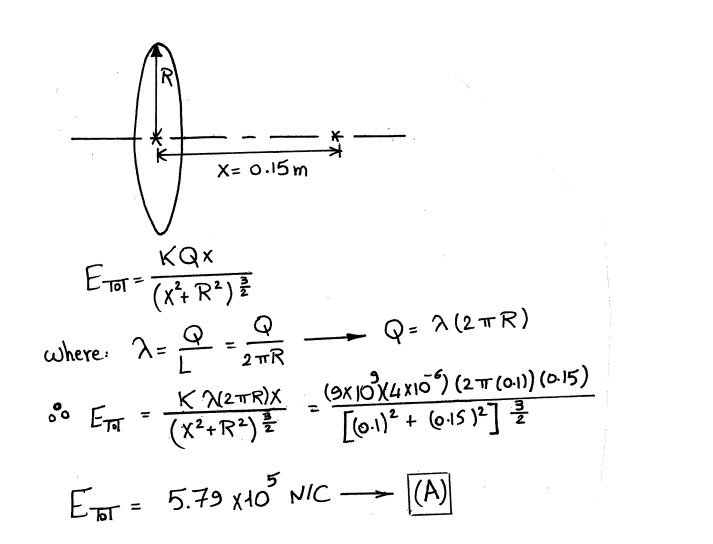 R
X = 0.15 m
E_TOT = KQx / (x² + R²)^(3/2)
where: λ = Q/L = Q/2πR ⟶ Q = λ(2πR)
∴ E_TOT = Kλ(2πR)x / (x² + R²)^(3/2) = (9x10⁹)(4x10⁻⁶)(2π(0.1))(0.15) / [(0.1)² + (0.15)²]^(3/2)
E_TOT = 5.79 x10⁵ N/C ⟶ (A)